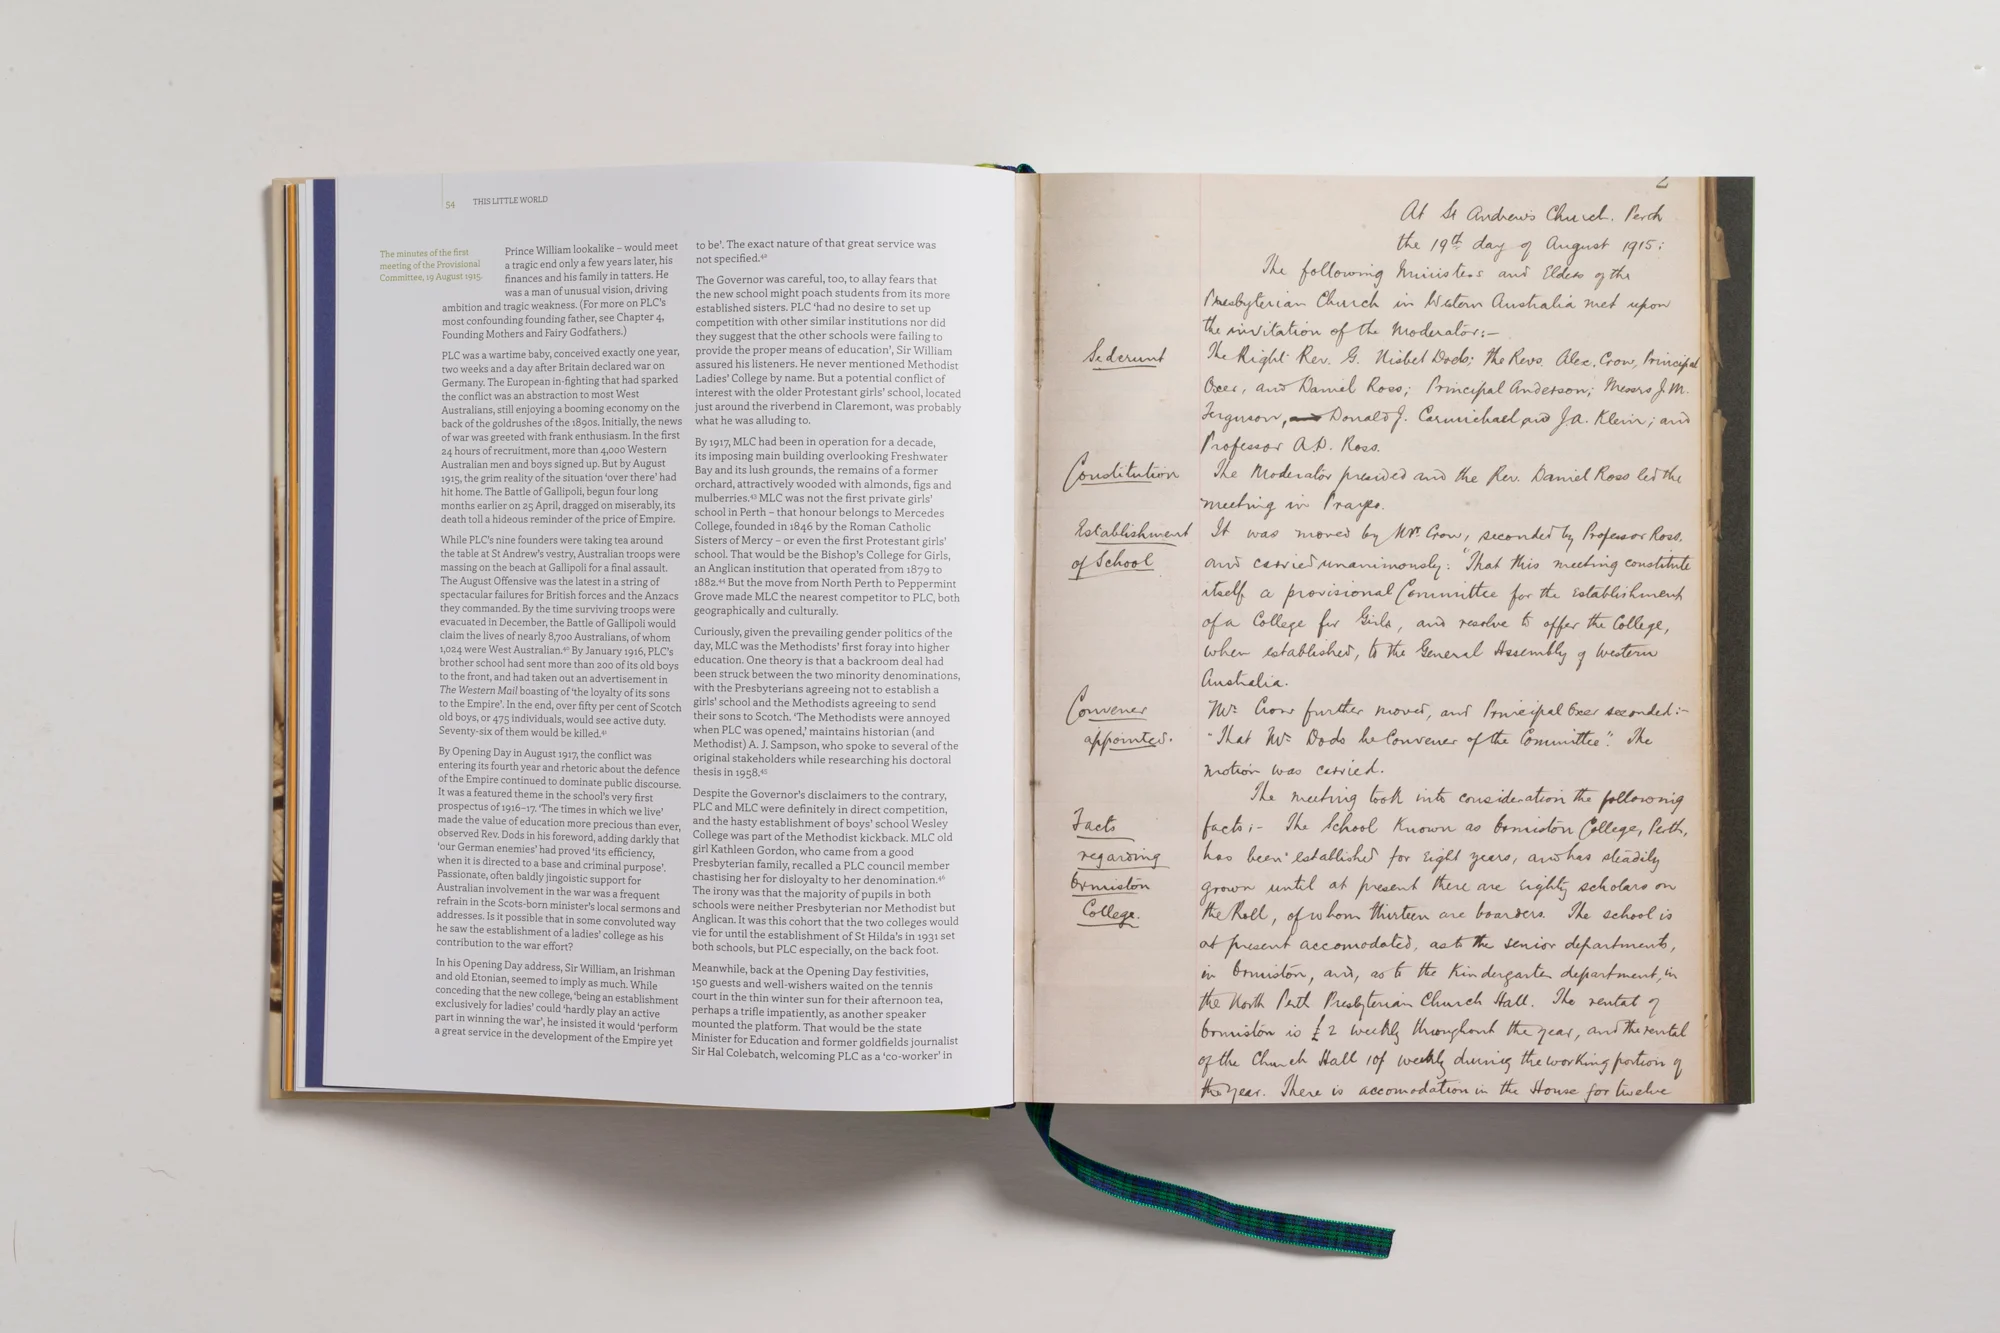 54 THIS LITTLE WORLD
The minutes of the first
meeting of the Provisional
Committee, 19 August 1915.
Prince William lookalike – would meet
a tragic end only a few years later, his
finances and his family in tatters. He
was a man of unusual vision, driving
ambition and tragic weakness. (For more on PLC's
most confounding founding father, see Chapter 4,
Founding Mothers and Fairy Godfathers.)
PLC was a wartime baby, conceived exactly one year,
two weeks and a day after Britain declared war on
Germany. The European in-fighting that had sparked
the conflict was an abstraction to most West
Australians, still enjoying a booming economy on the
back of the goldrushes of the 1890s. Initially, the news
of war was greeted with frank enthusiasm. In the first
24 hours of recruitment, more than 4,000 Western
Australian men and boys signed up. But by August
1915, the grim reality of the situation 'over there' had
hit home. The Battle of Gallipoli, begun four long
months earlier on 25 April, dragged on miserably, its
death toll a hideous reminder of the price of Empire.
While PLC's nine founders were taking tea around
the table at St Andrew's vestry, Australian troops were
massing on the beach at Gallipoli for a final assault.
The August Offensive was the latest in a string of
spectacular failures for British forces and the Anzacs
they commanded. By the time surviving troops were
evacuated in December, the Battle of Gallipoli would
claim the lives of nearly 8,700 Australians, of whom
1,024 were West Australian.⁴⁰ By January 1916, PLC's
brother school had sent more than 200 of its old boys
to the front, and had taken out an advertisement in
The Western Mail boasting of 'the loyalty of its sons
to the Empire'. In the end, over fifty per cent of Scotch
old boys, or 475 individuals, would see active duty.
Seventy-six of them would be killed.⁴¹
By Opening Day in August 1917, the conflict was
entering its fourth year and rhetoric about the defence
of the Empire continued to dominate public discourse.
It was a featured theme in the school's very first
prospectus of 1916–17. 'The times in which we live'
made the value of education more precious than ever,
observed Rev. Dods in his foreword, adding darkly that
'our German enemies' had proved 'its efficiency,
when it is directed to a base and criminal purpose'.
Passionate, often baldly jingoistic support for
Australian involvement in the war was a frequent
refrain in the Scots-born minister's local sermons and
addresses. Is it possible that in some convoluted way
he saw the establishment of a ladies' college as his
contribution to the war effort?
In his Opening Day address, Sir William, an Irishman
and old Etonian, seemed to imply as much. While
conceding that the new college, 'being an establishment
exclusively for ladies' could 'hardly play an active
part in winning the war', he insisted it would 'perform
a great service in the development of the Empire yet
to be'. The exact nature of that great service was
not specified.⁴²
The Governor was careful, too, to allay fears that
the new school might poach students from its more
established sisters. PLC 'had no desire to set up
competition with other similar institutions nor did
they suggest that the other schools were failing to
provide the proper means of education', Sir William
assured his listeners. He never mentioned Methodist
Ladies' College by name. But a potential conflict of
interest with the older Protestant girls' school, located
just around the riverbend in Claremont, was probably
what he was alluding to.
By 1917, MLC had been in operation for a decade,
its imposing main building overlooking Freshwater
Bay and its lush grounds, the remains of a former
orchard, attractively wooded with almonds, figs and
mulberries.⁴³ MLC was not the first private girls'
school in Perth – that honour belongs to Mercedes
College, founded in 1846 by the Roman Catholic
Sisters of Mercy – or even the first Protestant girls'
school. That would be the Bishop's College for Girls,
an Anglican institution that operated from 1879 to
1882.⁴⁴ But the move from North Perth to Peppermint
Grove made MLC the nearest competitor to PLC, both
geographically and culturally.
Curiously, given the prevailing gender politics of the
day, MLC was the Methodists' first foray into higher
education. One theory is that a backroom deal had
been struck between the two minority denominations,
with the Presbyterians agreeing not to establish a
girls' school and the Methodists agreeing to send
their sons to Scotch. 'The Methodists were annoyed
when PLC was opened,' maintains historian (and
Methodist) A. J. Sampson, who spoke to several of the
original stakeholders while researching his doctoral
thesis in 1958.⁴⁵
Despite the Governor's disclaimers to the contrary,
PLC and MLC were definitely in direct competition,
and the hasty establishment of boys' school Wesley
College was part of the Methodist kickback. MLC old
girl Kathleen Gordon, who came from a good
Presbyterian family, recalled a PLC council member
chastising her for disloyalty to her denomination.⁴⁶
The irony was that the majority of pupils in both
schools were neither Presbyterian nor Methodist but
Anglican. It was this cohort that the two colleges would
vie for until the establishment of St Hilda's in 1931 set
both schools, but PLC especially, on the back foot.
Meanwhile, back at the Opening Day festivities,
150 guests and well-wishers waited on the tennis
court in the thin winter sun for their afternoon tea,
perhaps a trifle impatiently, as another speaker
mounted the platform. That would be the state
Minister for Education and former goldfields journalist
Sir Hal Colebatch, welcoming PLC as a 'co-worker' in
2
At St Andrews Church. Perth
the 19th day of August 1915:
The following Ministers and Elders of the
Presbyterian Church in Western Australia met upon
the invitation of the Moderator:-
Sederunt The Right Rev. G. Nisbet Dods; The Revs. Alex. Crow, Principal
Oxer, and Daniel Ross; Principal Anderson; Messrs J. M.
Ferguson, Donald J. Carmichael and J. A. Klein; and
Professor A.D. Ross.
Constitution The Moderator presided and the Rev. Daniel Ross led the
meeting in Prayer.
Establishment It was moved by Mr. Crow, seconded by Professor Ross.
of School and carried unanimously: "That this meeting constitute
itself a provisional Committee for the Establishment
of a College for Girls, and resolve to offer the College,
when established, to the General Assembly of Western
Australia.
Convener Mr. Crow further moved, and Principal Oxer seconded:-
appointed. "That Mr. Dods be Convener of the Committee". The
motion was carried.
The meeting took into consideration the following
Facts facts:- The School known as Ormiston College, Perth,
regarding has been established for eight years, and has steadily
Ormiston grown until at present there are eighty scholars on
College. the Roll, of whom thirteen are boarders. The school is
at present accomodated, as to the senior department,
in Ormiston, and, as to the Kindergarten department, in
the North Perth Presbyterian Church Hall. The rental of
Ormiston is £2 weekly throughout the year, and the rental
of the Church Hall 10/ weekly during the working portion of
the year. There is accomodation in the House for twelve